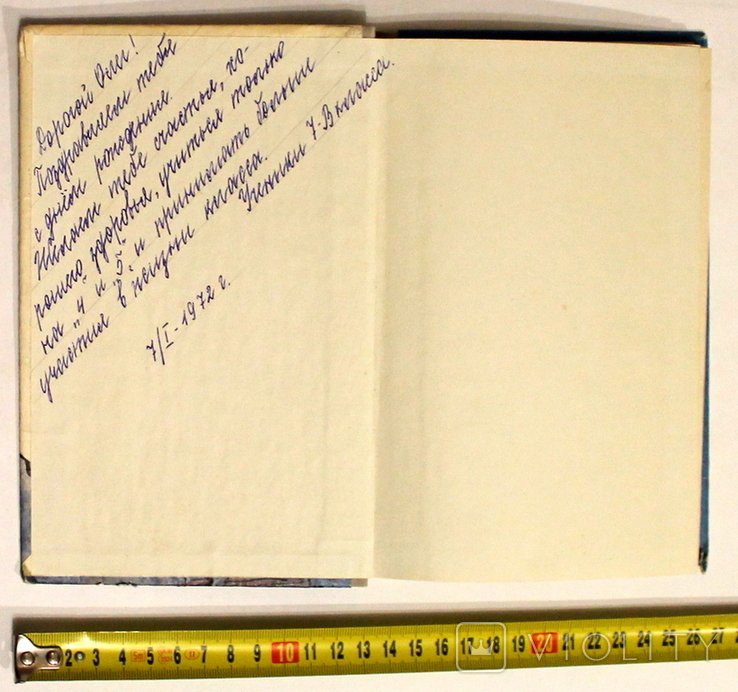 Дорогой Олег!
Поздравляем тебя
с днём рождения.
Желаем тебе счастья, хо-
рошего здоровья, учиться только
на „4" и „5", и принимать больше
участия в жизни класса.
Ученики 7-В класса.
7/I-1972 г.
VIOLITY
2 3 4 5 6 7 8 9 10 11 12 13 14 15 16 17 18 19 20 21 22 23 24 25 26 27